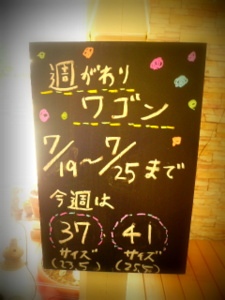 週がわり
ワゴン
7/19〜7/25まで
今週は
37 41
サイズ サイズ
(23.5) (25.5)